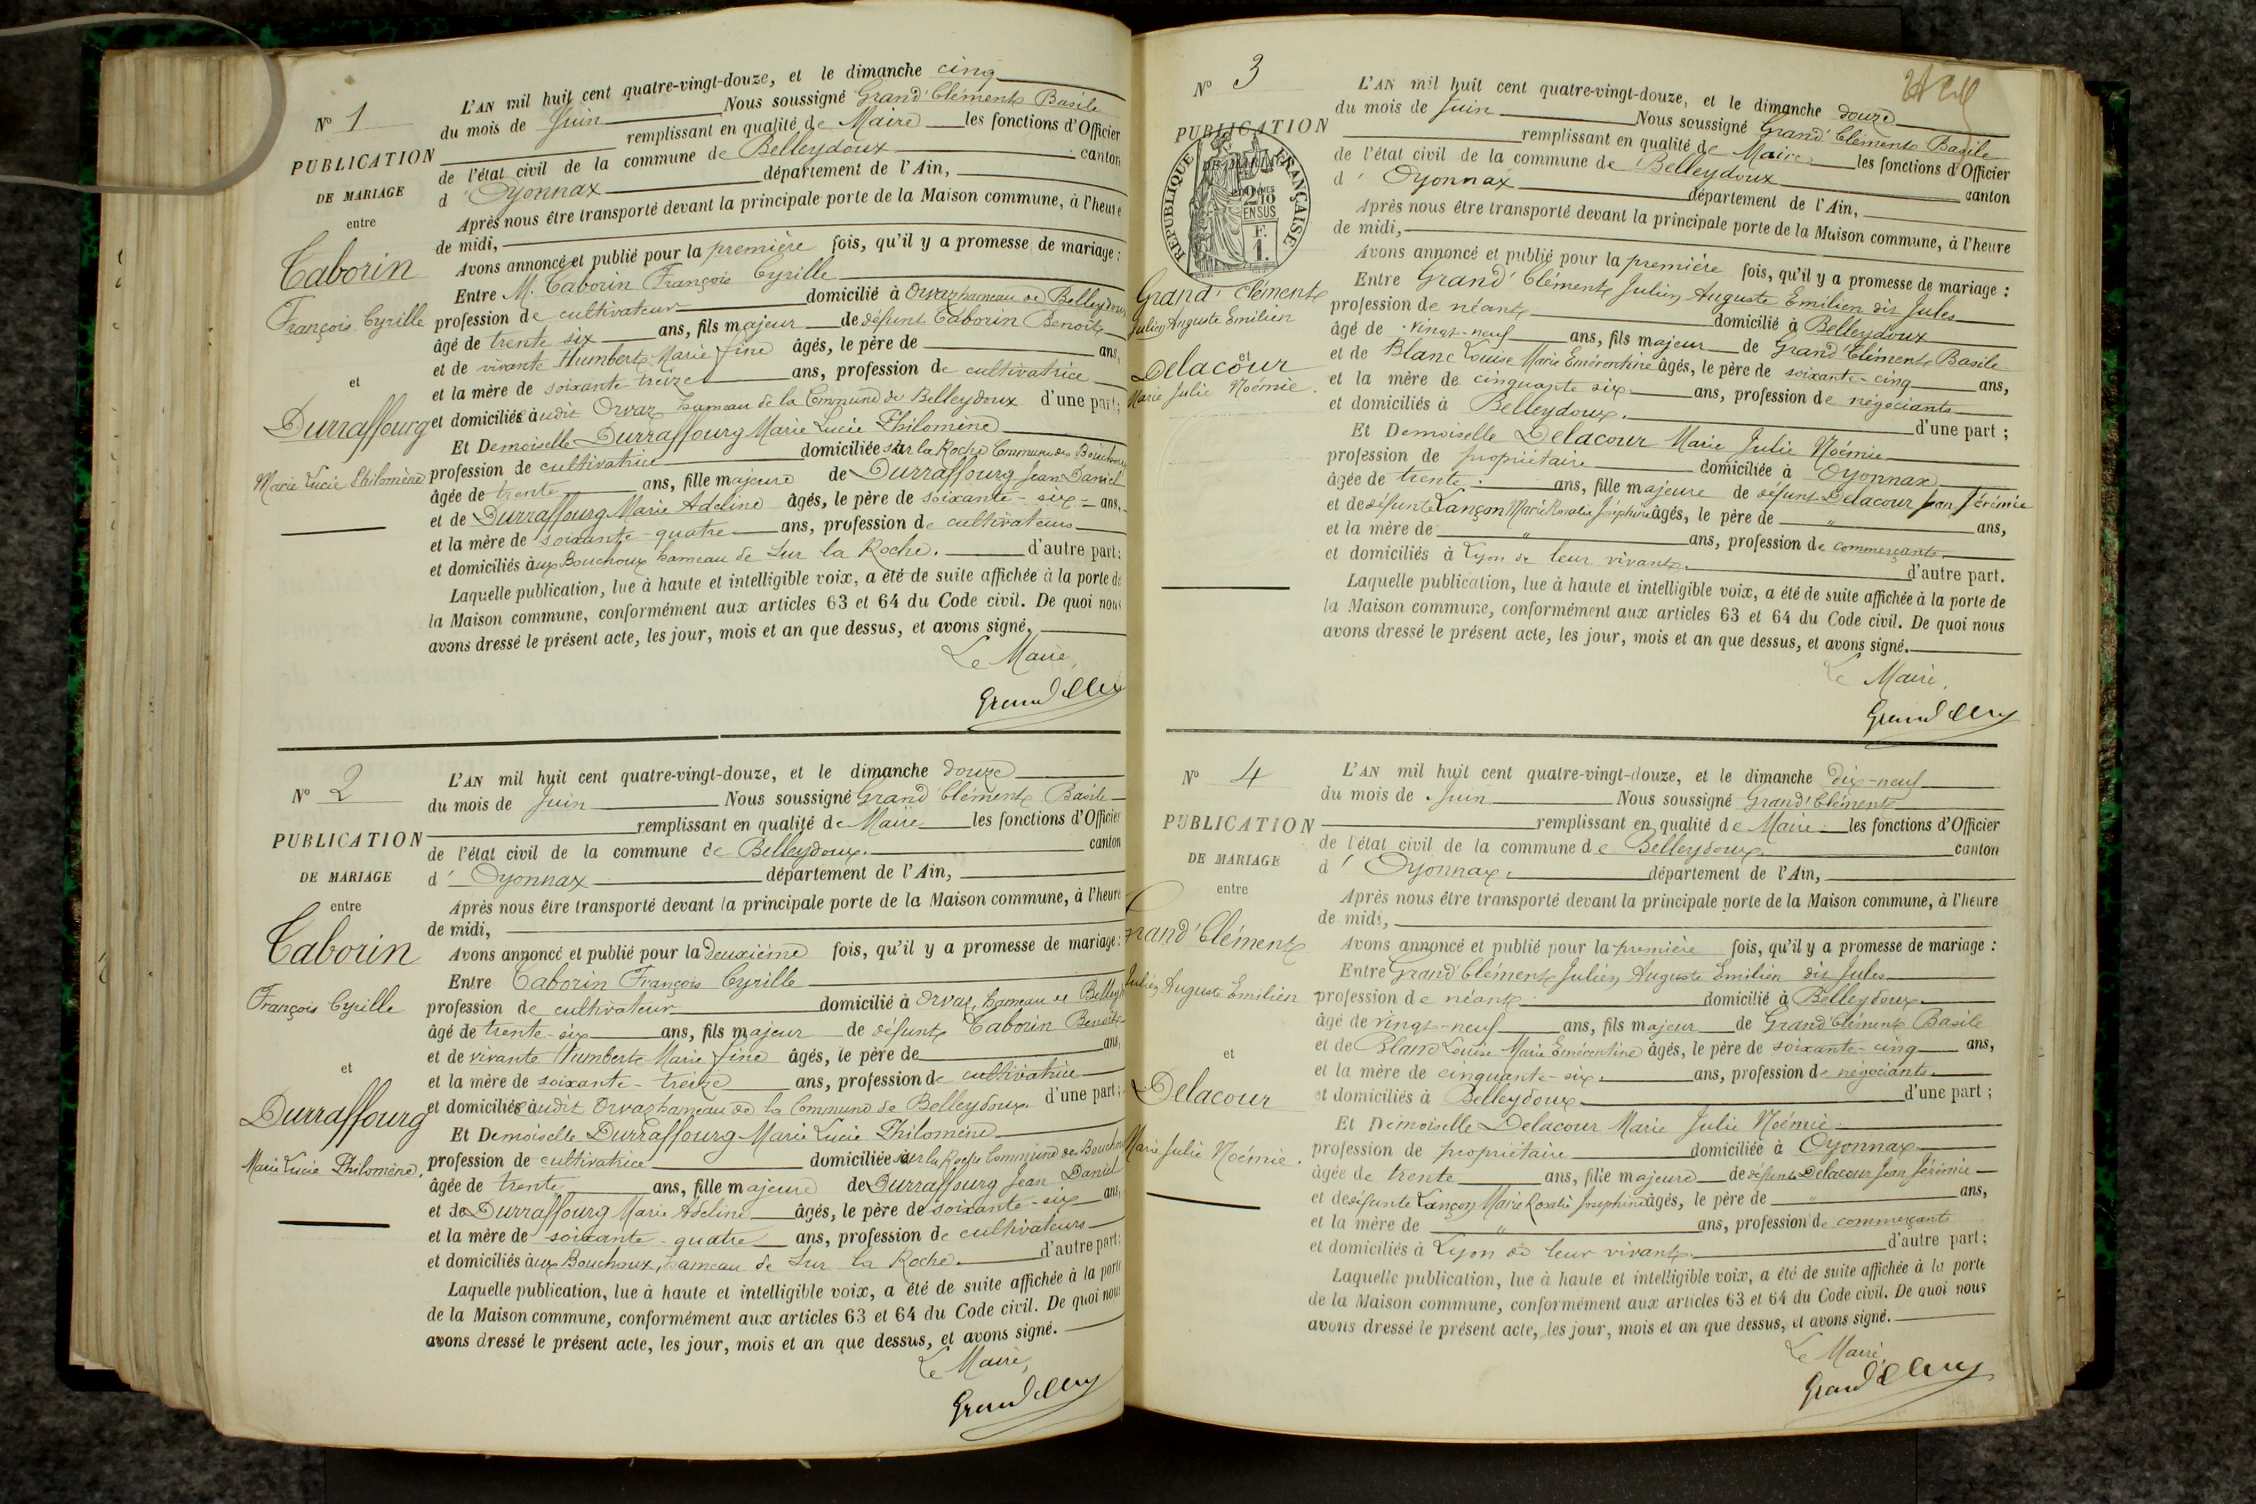 N° 1
PUBLICATION
DE MARIAGE
entre
Taborin
François Cyrille
et
Durraffourg
Marie Lucie Philomène
L'AN mil huit cent quatre-vingt-douze, et le dimanche cinq
du mois de Juin Nous soussigné Grand'Clément Basile
remplissant en qualité de Maire les fonctions d'Officier
de l'état civil de la commune de Belleydoux canton
d'Oyonnax département de l'Ain,
Après nous être transporté devant la principale porte de la Maison commune, à l'heure
de midi,
Avons annoncé et publié pour la première fois, qu'il y a promesse de mariage :
Entre M. Taborin François Cyrille
profession de cultivateur domicilié à Orvaz hameau de Belleydoux
âgé de trente six ans, fils majeur de défunt Taborin Benoit
et de vivante Humbert Marie fine âgés, le père de ans,
et la mère de soixante treize ans, profession de cultivatrice
et domiciliés audit Orvaz hameau de la Commune de Belleydoux d'une part ;
Et Demoiselle Durraffourg Marie Lucie Philomène
profession de cultivatrice domiciliée sur la Roche Commune des Bouchoux
âgée de trente ans, fille majeure de Durraffourg Jean Daniel
et de Durraffourg Marie Adeline âgés, le père de soixante-six ans,
et la mère de soixante-quatre ans, profession de cultivateurs
et domiciliés aux Bouchoux hameau de Sur la Roche. d'autre part ;
Laquelle publication, lue à haute et intelligible voix, a été de suite affichée à la porte de
la Maison commune, conformément aux articles 63 et 64 du Code civil. De quoi nous
avons dressé le présent acte, les jour, mois et an que dessus, et avons signé.
Le Maire,
N° 2
PUBLICATION
DE MARIAGE
entre
Taborin
François Cyrille
et
Durraffourg
Marie Lucie Philomène.
L'AN mil huit cent quatre-vingt-douze, et le dimanche douze
du mois de Juin Nous soussigné Grand'Clément Basile
remplissant en qualité de Maire les fonctions d'Officier
de l'état civil de la commune de Belleydoux. canton
d'Oyonnax département de l'Ain,
Après nous être transporté devant la principale porte de la Maison commune, à l'heure
de midi,
Avons annoncé et publié pour la deuxième fois, qu'il y a promesse de mariage :
Entre Taborin François Cyrille
profession de cultivateur domicilié à Orvaz, hameau de Belleyd
âgé de trente-six ans, fils majeur de défunt Taborin Benoit
et de vivante Humbert Marie fine âgés, le père de ans,
et la mère de soixante-treize ans, profession de cultivatrice
et domiciliés audit Orvaz hameau de la Commune de Belleydoux. d'une part ;
Et Demoiselle Durraffourg Marie Lucie Philomène
profession de cultivatrice domiciliée sur la Roche Commune des Bouchoux
âgée de trente ans, fille majeure de Durraffourg Jean Daniel
et de Durraffourg Marie Adeline âgés, le père de soixante-six ans,
et la mère de soixante-quatre ans, profession de cultivateurs
et domiciliés aux Bouchoux, hameau de Sur la Roche. d'autre part ;
Laquelle publication, lue à haute et intelligible voix, a été de suite affichée à la porte
de la Maison commune, conformément aux articles 63 et 64 du Code civil. De quoi nous
avons dressé le présent acte, les jour, mois et an que dessus, et avons signé.
Le Maire,
N° 3
PUBLICATION
REPUBLIQUE FRANÇAISE
2/10
EN SUS
F.
1.
Grand'Clément
Julien Auguste Emilien
et
Delacour
Marie Julie Noémie.
L'AN mil huit cent quatre-vingt-douze, et le dimanche douze
du mois de Juin Nous soussigné Grand'Clément Basile
remplissant en qualité de Maire les fonctions d'Officier
de l'état civil de la commune de Belleydoux canton
d'Oyonnax département de l'Ain,
Après nous être transporté devant la principale porte de la Maison commune, à l'heure
de midi,
Avons annoncé et publié pour la première fois, qu'il y a promesse de mariage :
Entre Grand'Clément Julien Auguste Emilien dit Jules
profession de néant domicilié à Belleydoux
âgé de vingt-neuf ans, fils majeur de Grand'Clément Basile
et de Blanc Louise Marie Emérentine âgés, le père de soixante-cinq ans,
et la mère de cinquante six ans, profession de négociants
et domiciliés à Belleydoux. d'une part ;
Et Demoiselle Delacour Marie Julie Noémie
profession de propriétaire domiciliée à Oyonnax
âgée de trente ans, fille majeure de défunt Delacour Jean Jérémie
et de défunte Lançon Marie Rosalie Joséphine âgés, le père de " ans,
et la mère de " ans, profession de commerçants
et domiciliés à Lyon de leur vivant. d'autre part.
Laquelle publication, lue à haute et intelligible voix, a été de suite affichée à la porte de
la Maison commune, conformément aux articles 63 et 64 du Code civil. De quoi nous
avons dressé le présent acte, les jour, mois et an que dessus, et avons signé.
Le Maire,
N° 4
PUBLICATION
DE MARIAGE
entre
Grand'Clément
Julien Auguste Emilien
et
Delacour
Marie Julie Noémie.
L'AN mil huit cent quatre-vingt-douze, et le dimanche dix-neuf
du mois de Juin Nous soussigné Grand'Clément
remplissant en qualité de Maire les fonctions d'Officier
de l'état civil de la commune de Belleydoux canton
d'Oyonnax. département de l'Ain,
Après nous être transporté devant la principale porte de la Maison commune, à l'heure
de midi,
Avons annoncé et publié pour la première fois, qu'il y a promesse de mariage :
Entre Grand'Clément Julien Auguste Emilien dit Jules
profession de néant domicilié à Belleydoux
âgé de vingt-neuf ans, fils majeur de Grand'Clément Basile
et de Blanc Louise Marie Emérentine âgés, le père de soixante-cinq ans,
et la mère de cinquante-six ans, profession de négociants
et domiciliés à Belleydoux d'une part ;
Et Demoiselle Delacour Marie Julie Noémie
profession de propriétaire domiciliée à Oyonnax
âgée de trente ans, fille majeure de défunt Delacour Jean Jérémie
et de défunte Lançon Marie Rosalie Joséphine âgés, le père de " ans,
et la mère de " ans, profession de commerçants
et domiciliés à Lyon de leur vivant. d'autre part ;
Laquelle publication, lue à haute et intelligible voix, a été de suite affichée à la porte
de la Maison commune, conformément aux articles 63 et 64 du Code civil. De quoi nous
avons dressé le présent acte, les jour, mois et an que dessus, et avons signé.
Le Maire,